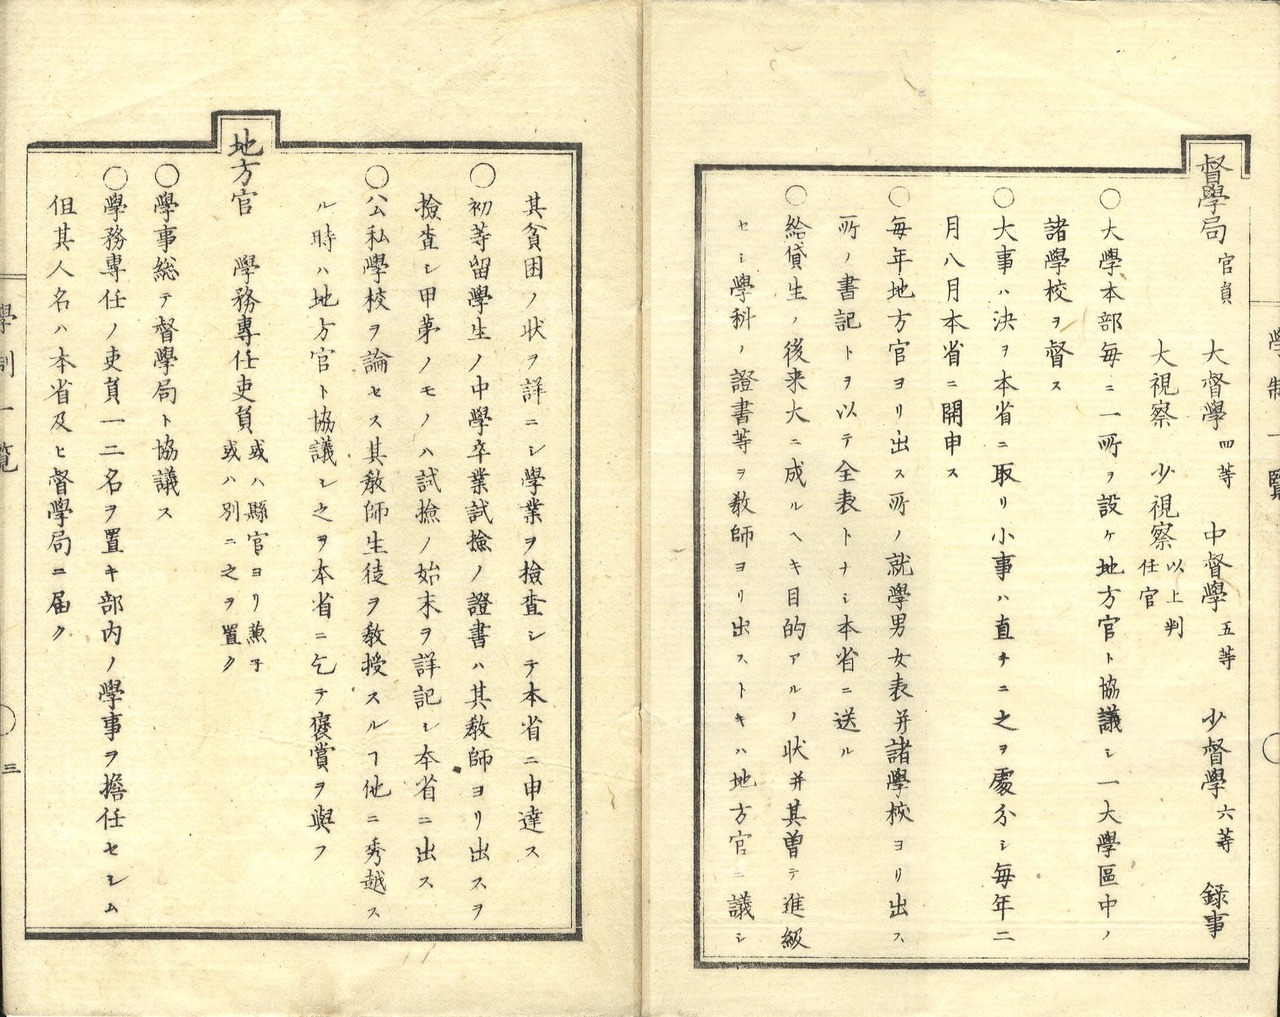 督學局 官員 大督學四等 中督學五等 少督學六等 錄事
大視察 少視察 以上判任官
○大學本部毎ニ一所ヲ設ケ地方官ト協議シ一大學區中ノ
諸學校ヲ督ス
○大事ハ決ヲ本省ニ取リ小事ハ直チニ之ヲ處分シ毎年二
月八月本省ニ開申ス
○毎年地方官ヨリ出ス所ノ就學男女表并諸學校ヨリ出ス
所ノ書記トヲ以テ全表トナシ本省ニ送ル
○給貸生ノ後来大ニ成ルヘキ目的アルノ状并其曽テ進級
セシ學科ノ證書等ヲ教師ヨリ出ストキハ地方官ニ議シ
學制一覽
其貧困ノ状ヲ詳ニシ學業ヲ撿査シテ本省ニ申達ス
○初等留學生ノ中學卒業試撿ノ證書ハ其教師ヨリ出スヲ
撿査シ甲第ノモノハ試撿ノ始末ヲ詳記シ本省ニ出ス
○公私學校ヲ論セス其教師生徒ヲ教授スルヿ他ニ秀越ス
ル時ハ地方官ト協議シ之ヲ本省ニ乞テ褒賞ヲ與フ
地方官 學務專任吏員 或ハ縣官ヨリ兼子或ハ別ニ之ヲ置ク
○學事総テ督學局ト協議ス
○學務專任ノ吏員一二名ヲ置キ部内ノ學事ヲ擔任セシム
但其人名ハ本省及ヒ督學局ニ届ク
學制一覽 ○三